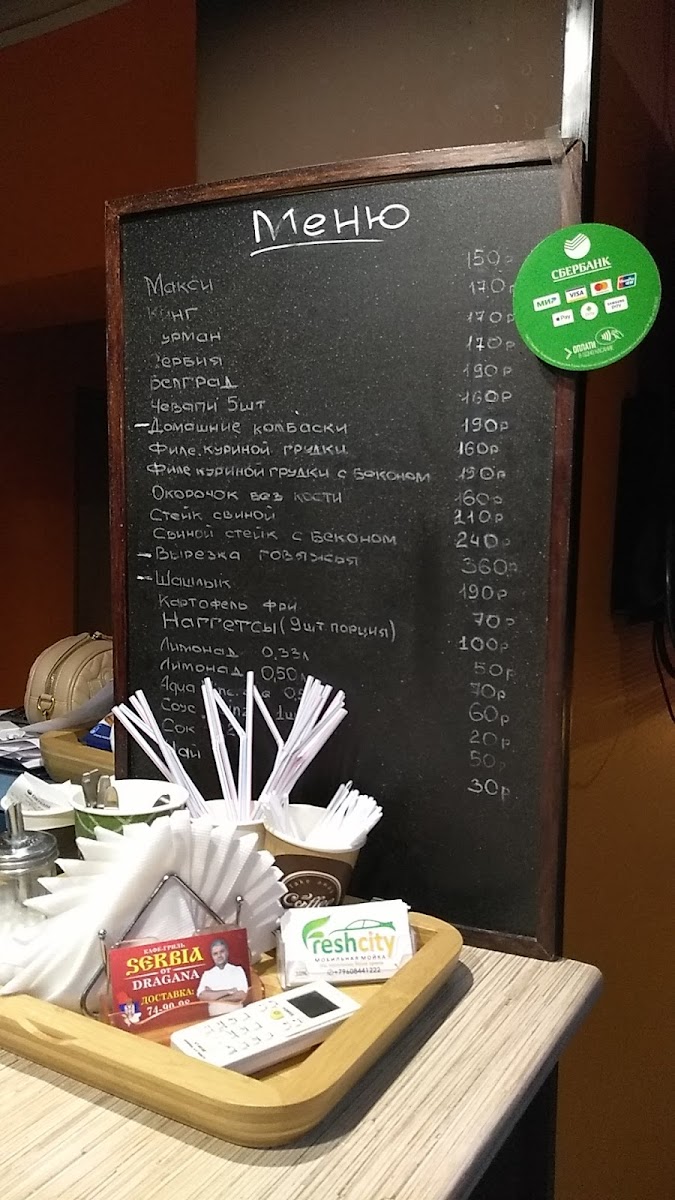 Меню
Макси 150р
Кинг 170р
Гурман 170р
Сербия 170р
Белград 190р
Чевапи 5шт 160р
-Домашние колбаски 190р
Филе куриной грудки 160р
Филе куриной грудки с беконом 190р
Окорочок без кости 160р
Стейк свиной 210р
Свиной стейк с беконом 240р
-Вырезка говяжья 360р
-Шашлык 190р
Картофель фри 70р
Наггетсы (9шт порция) 100р
Лимонад 0,33л 50р
Лимонад 0,50л 70р
Aqua 60р
Соус 20р
Сок 50р
Чай 30р
СБЕРБАНК
МИР VISA mastercard
Pay
>ОПЛАТИ
Coffee
КАФЕ-ГРИЛЬ
SERBIA
от
DRAGANA
ДОСТАВКА:
74-90-98
Freshcity
МОБИЛЬНАЯ МОЙКА
+79608441222